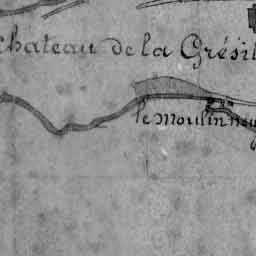 chateau de la Grésil
le moulin neu